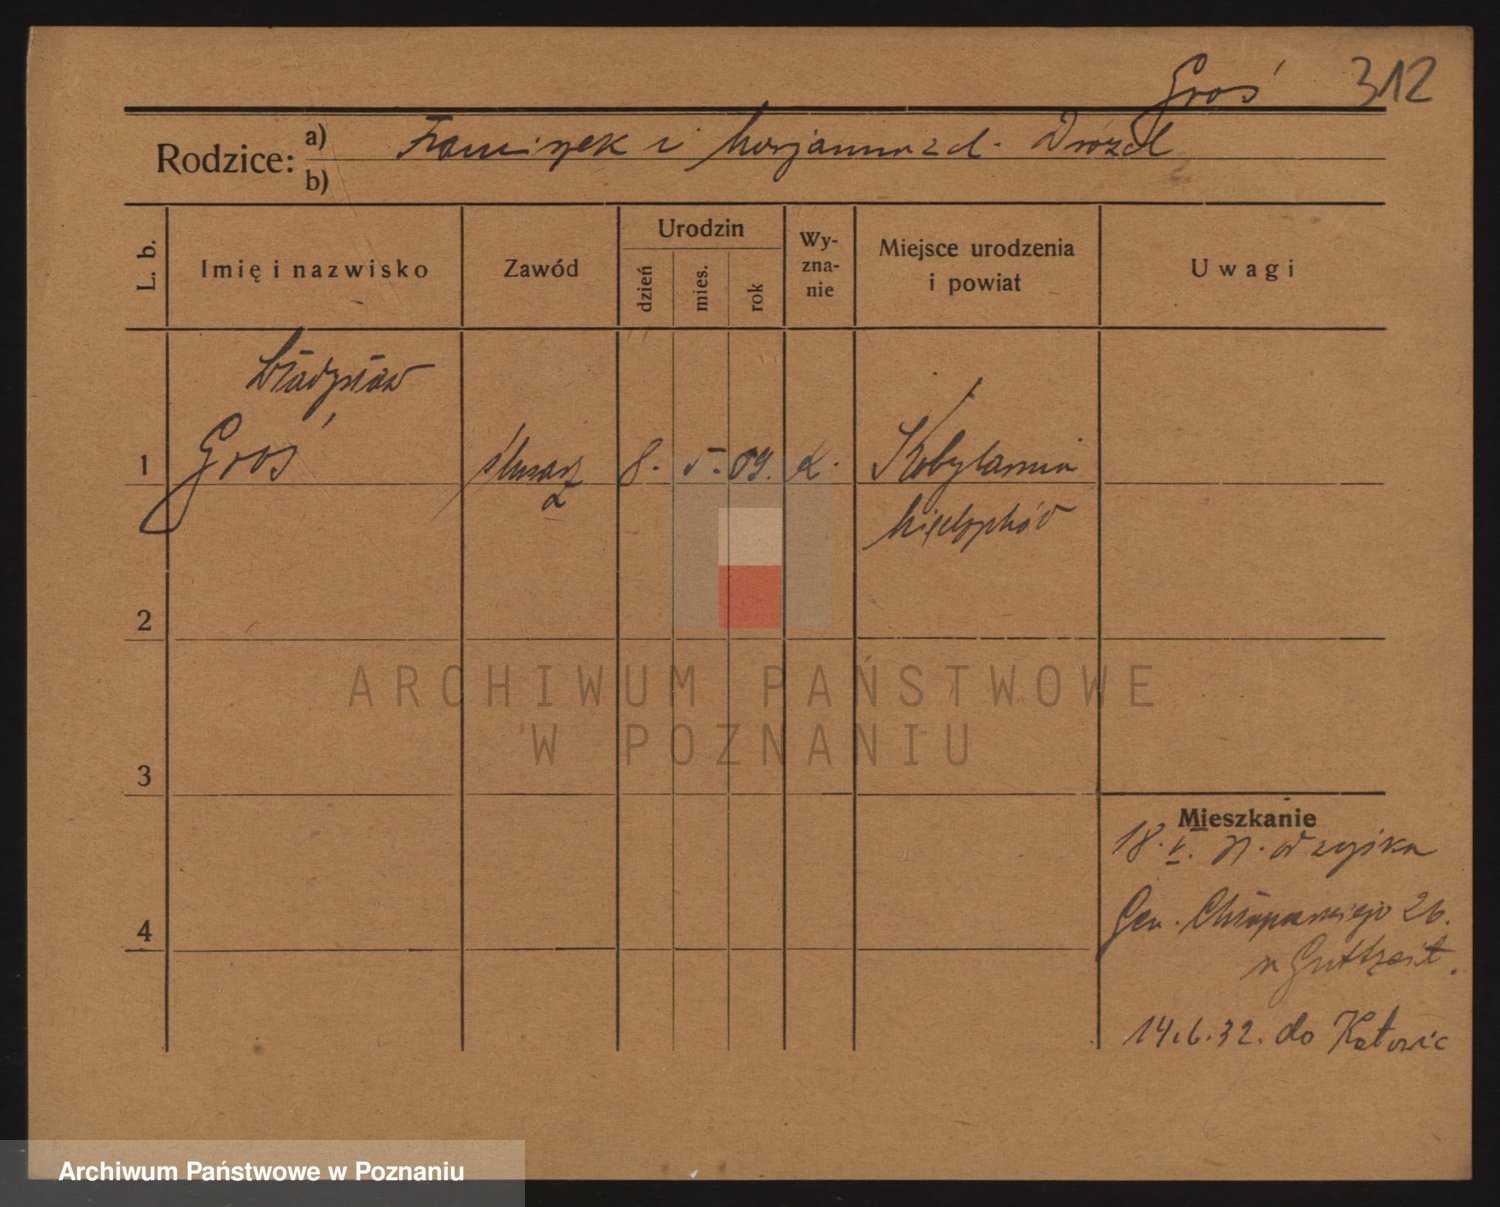 Groś 312
Rodzice: a) Franciszek i Marjanna z d. Drozd
b)
L. b. Imię i nazwisko Zawód Urodzin dzień mies. rok Wy-zna-nie Miejsce urodzenia i powiat Uwagi
Władysław
1 Groś ślusarz 8. 5. 09. k. Kobylarnia
2
3
Mieszkanie
18. V. 31. od wojska
4 Gen. Chłapowskiego 26.
14.6.32. do Katowic
ARCHIWUM PAŃSTWOWE
W POZNANIU
Archiwum Państwowe w Poznaniu